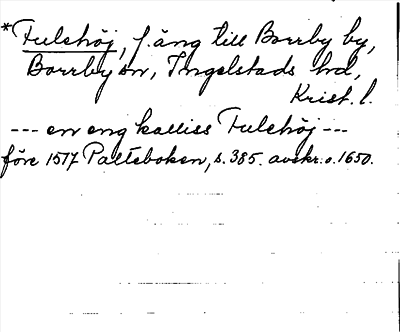 *Fulehöj, f. äng till Borrby by,
Borrby sn, Ingelstads hd,
Krist. l.
--- en eng kalliss Fulehöj ---
före 1517 Palteboken, s. 385. avskr. o. 1650.